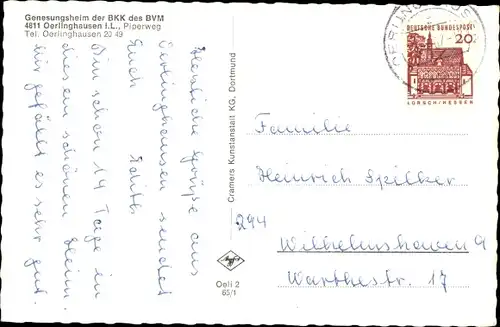 Genesungsheim der BKK des BVM
4811 Oerlinghausen i.L., Piperweg
Tel. Oerlinghausen 20 49
Herzliche Grüße aus
Oerlinghausen sendet
Euch Edith
Bin schon 14 Tage in
dies. ein schönen Heim.
Mir gefällt es sehr gut.
Cramers Kunstanstalt KG, Dortmund
Agfa
Oeli 2
65/1
DEUTSCHE BUNDESPOST
20
LORSCH/HESSEN
Familie
Heinrich Spilker
294
Wilhelmshaven
Warthestr. 17